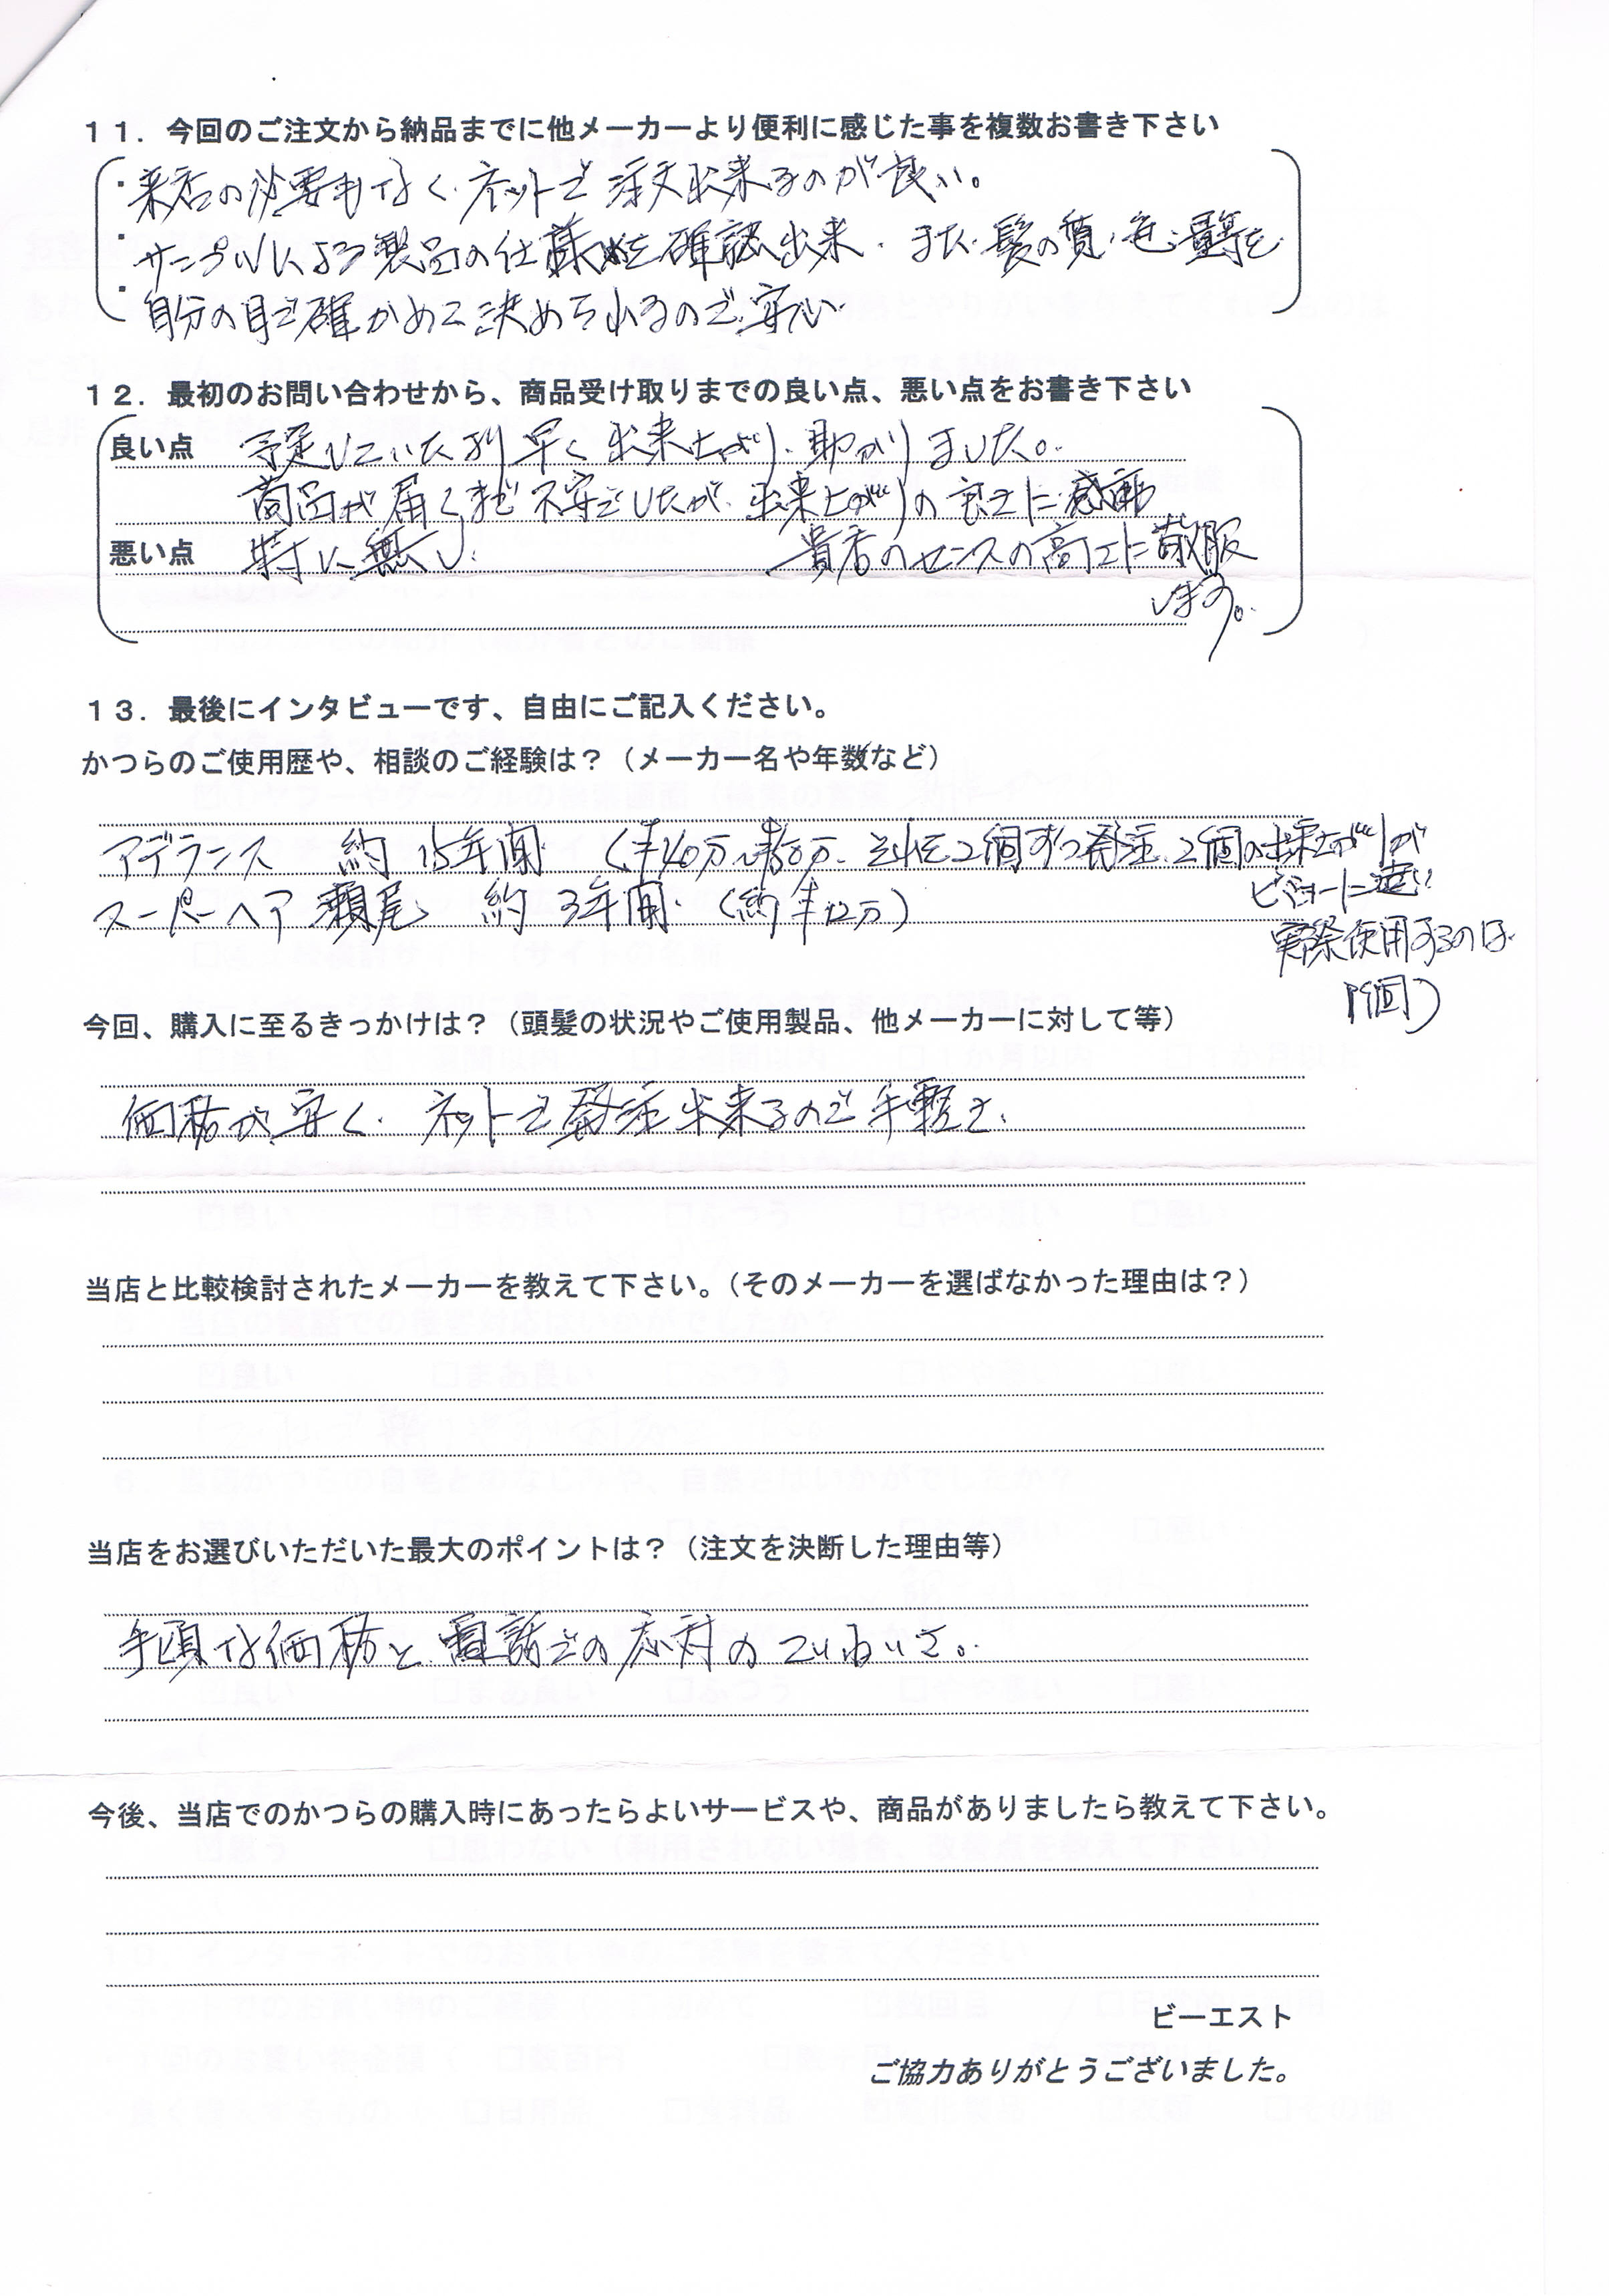 １１．今回のご注文から納品までに他メーカーより便利に感じた事を複数お書き下さい
・来店の必要もなく、ネットで注文出来るのが良い。
・サンプルによる製品の仕様を確認出来、また、髪の質、色、量等を
・自分の目で確かめて決められるので安心
１２．最初のお問い合わせから、商品受け取りまでの良い点、悪い点をお書き下さい
良い点 予定していたより早く出来上がり、助かりました。
商品が届くまで不安でしたが、出来上がりの良さに感動
悪い点 特に無し。 貴店のセンスの高さに敬服
します。
１３．最後にインタビューです、自由にご記入ください。
かつらのご使用歴や、相談のご経験は？（メーカー名や年数など）
アデランス 約15年間 それを2個ずつ発注、2個の出来上がりが
ビミョーに違い
スーパーヘア瀬尾 約3年間（約半12万）
実際使用するのは
1個）
今回、購入に至るきっかけは？（頭髪の状況やご使用製品、他メーカーに対して等）
価格が安く、ネットで発注出来るので手軽さ、
当店と比較検討されたメーカーを教えて下さい。（そのメーカーを選ばなかった理由は？）
当店をお選びいただいた最大のポイントは？（注文を決断した理由等）
手頃な価格と電話での応対のていねいさ。
今後、当店でのかつらの購入時にあったらよいサービスや、商品がありましたら教えて下さい。
ビーエスト
ご協力ありがとうございました。